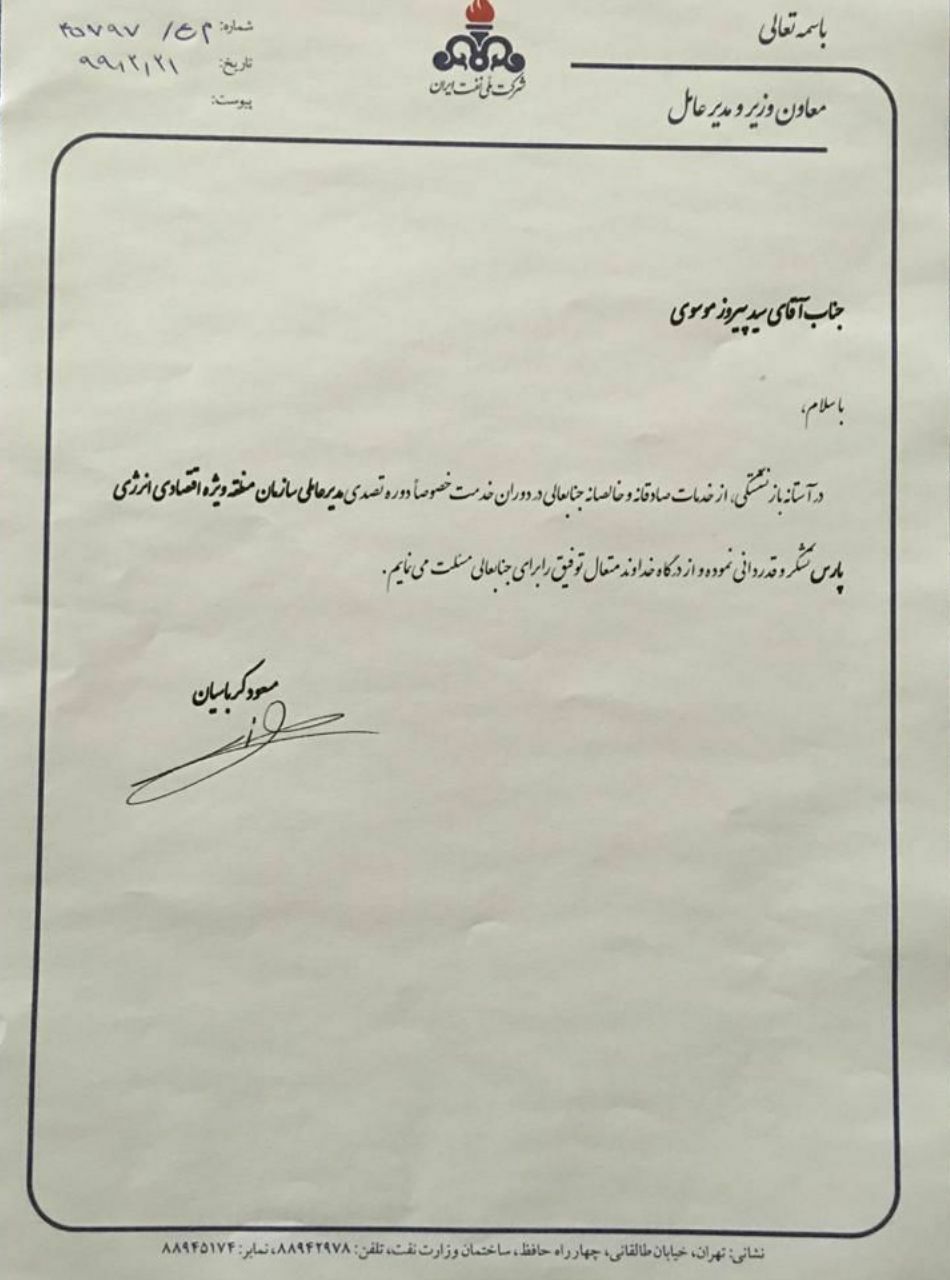 باسمه تعالی
معاون وزیر و مدیر عامل
شرکت ملی نفت ایران
شماره: م ع/ ۴۵۷۹۷
تاریخ: ۹۹/۲/۲۱
پیوست:
جناب آقای سید پیروز موسوی
با سلام،
در آستانه بازنشستگی، از خدمات صادقانه و خالصانه جنابعالی در دوران خدمت خصوصاً دوره تصدی مدیرعاملی سازمان منطقه ویژه اقتصادی انرژی
پارس تشکر و قدردانی نموده و از درگاه خداوند متعال توفیق را برای جنابعالی مسئلت می نمایم.
مسعود کرباسیان
نشانی: تهران، خیابان طالقانی، چهار راه حافظ، ساختمان وزارت نفت، تلفن: ۸۸۹۴۲۹۷۸، نمابر: ۸۸۹۴۵۱۷۴